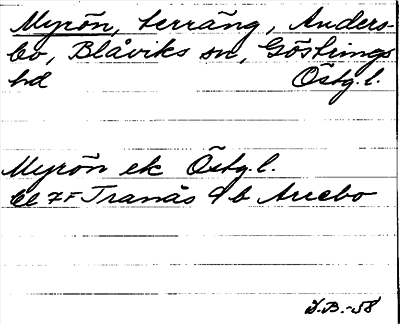 Myrön, terräng, Anders-
bo, Blåviks sn, Göstrings
hd Östg.l.
Myrön ek Östg.l.
bl 7F Tranås 9b Anebo
S.B.-58